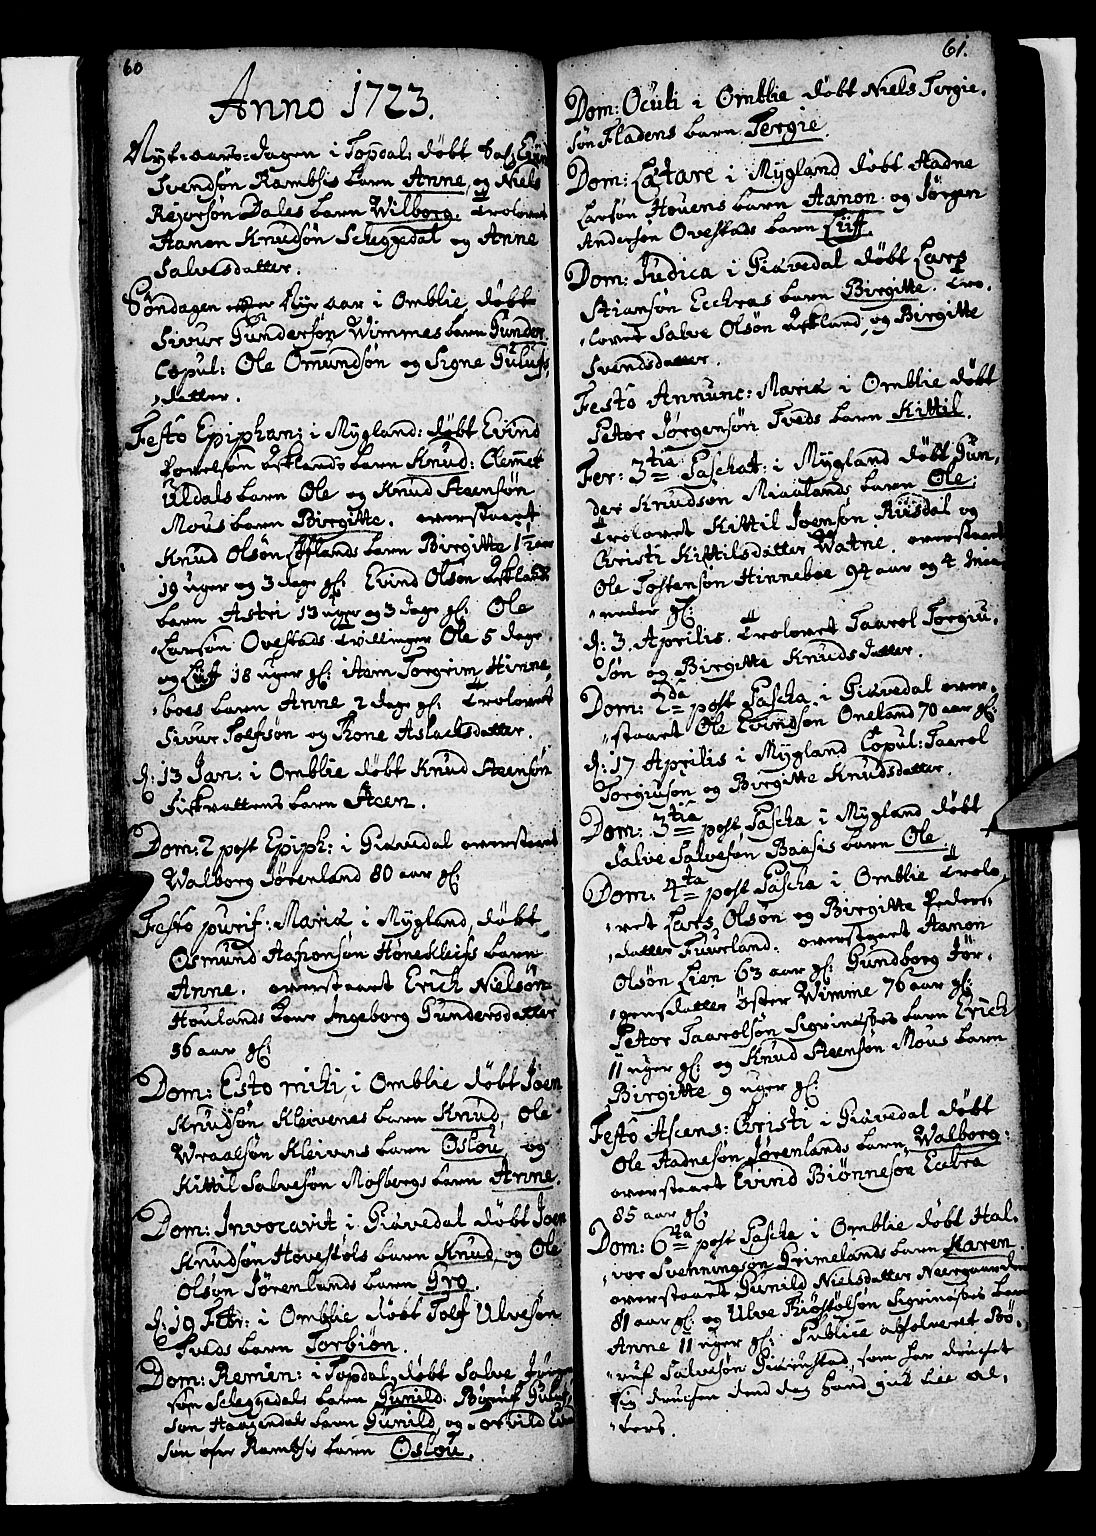 60
Anno 1723.
Nyt-aars-dagen i Topdal døbt
Svendsøn Rambsis barn Anne, og Niels
Rejorsøn Dales barn Wilborg. Trolovet
Aanon Knudsøn Scheggedal og Anne
Salvesdatter.
Søndagen efter Nyt aar i Omblie, døbt
Sivur Gundersøn Wimmes barn Gunder.
Copul: Ole Omundsøn og Signe Gulufs
datter.
Festo Epiphan: i Mygland: døbt Evind
Povelsøn Asklands barn Knud: Olemet
Uldals barn Ole og Knud Steensøn
Mous barn Birgitte. overstaaet
Knud Olsøn barn Birgitte 1½ aar
19 uger og 3 dage gl: Evind Olsøn Asklands
barn Astri 13 uger og 3 dage gl: Ole
Larsøn Ovestads Tvillinger Ole 5 dage
og Liff 18 uger gl: item Torgrim Hinne
boes barn Anne 2 dage gl: Trolovet
Sivur Tolfsøn og Tone Aslachsdatter.
d: 13 Jan: i Omblie døbt Knud Steensøn
Fiskvattens barn Steen.
Dom: 2 post Epiph: i Giævedal overstaaet
Walborg Jørenland 80 aar gl:
Festo purif: Mariæ i Mygland, døbt
Osmund Aanonsøn Høneskleifs barn
Anne. overstaaet Erich Nielsøn
Houlands Kone Ingeborg Gundersdatter
56 aar gl:
Dom: Esto mihi, i Omblie døbt Joen
Knudsøn Kleivenes barn Knud, Ole
Wraalsøn Kleivens barn Oslou, og
Kittil Salvesøn Mosbergs barn Anne.
Dom: Invocavit i Giævedal døbt Joen
Knudsøn Hovestøls barn Knud, og Ole
Olsøn Jørenlands barn Gro.
d: 19 Febr: i Omblie døbt Tolf Ulvesøn
Tveds barn Torbiøn.
Dom: Remin: i Topdal, døbt Salve
søn Scheggedals barn Gunild: Børuf Guluf
søn Haagendals barn Gunild, og Torkild
søn øfre Rambsis barn Oslou.
61.
Dom: Oculi i Omblie døbt Niels Tergie-
søn Fladens barn Tergie.
Dom: Lætare i Mygland døbt Aadne
Larsøn Houens barn Aanon. og Jørgen
Andersøn Ovestads barn Liff.
Dom: Judica i Giævedal døbt Lars
Stiansøn Eechras barn Birgitte. Tro-
lovet Salve Olsøn Askland, og Birgitte
Svendsdatter.
Festo Annunc: Mariæ i Omblie døbt
Peter Jørgensøn Tveds barn Kittil.
Fer: 3tia Paschat: i Mygland døbt Gun-
der Knudsøn Miaalands barn Ole:
Trolovet Kittil Joensøn Riisdal og
Christi Kittilsdatter Watne. overstaaet
Ole Tostensøn Hinneboe 94 aar og 4 Maa-
neder gl:
d: 3 Aprilis. Trolovet Taarol Torgiu-
søn og Birgitte Knudsdatter.
Dom: 2da post Pascha i Giævedal over-
staaet Ole Evindsøn Oneland 70 aar gl:
d: 17 Aprilis i Mygland Copul: Taarol
Torgiusøn og Birgitte Knudsdatter.
Dom: 3tia post Pascha i Mygland døbt
Salve Salvesøn Baasis barn Ole.
Dom: 4ta post Pascha i Omblie Trolo-
vet Lars Olsøn og Birgitte Peders-
datter Tuveland. overstaaet Aanon
Olsøn Lien 63 aar gl: Gundborg Jør-
gensdatter Øster Wimme 76 aar gl:
Peter Taarolsøn Sigrinæses barn Erich
11 uger gl: og Knud Steensøn Mous barn
Birgitte 9 uger gl:
Festo Ascens: Christi i Giævedal døbt
Ole Aadnesøn Jørenlands barn Walborg:
overstaaet Evind Biønnesøn Eechra
85 aar gl:
Dom: 6ta post Pascha i Omblie døbt Hal-
vor Svenningsøn Grimelands barn Karen
overstaaet Gunild Nielsdatter Neergaarden
81 aar gl: og Ulve Tiøstolsøn Sigrinæses barn
Anne 11 uger gl: Publice absolveret Bø-
ruf Salvesøn som har drucket
sig drucken dend dag hand gik til al-
ters.